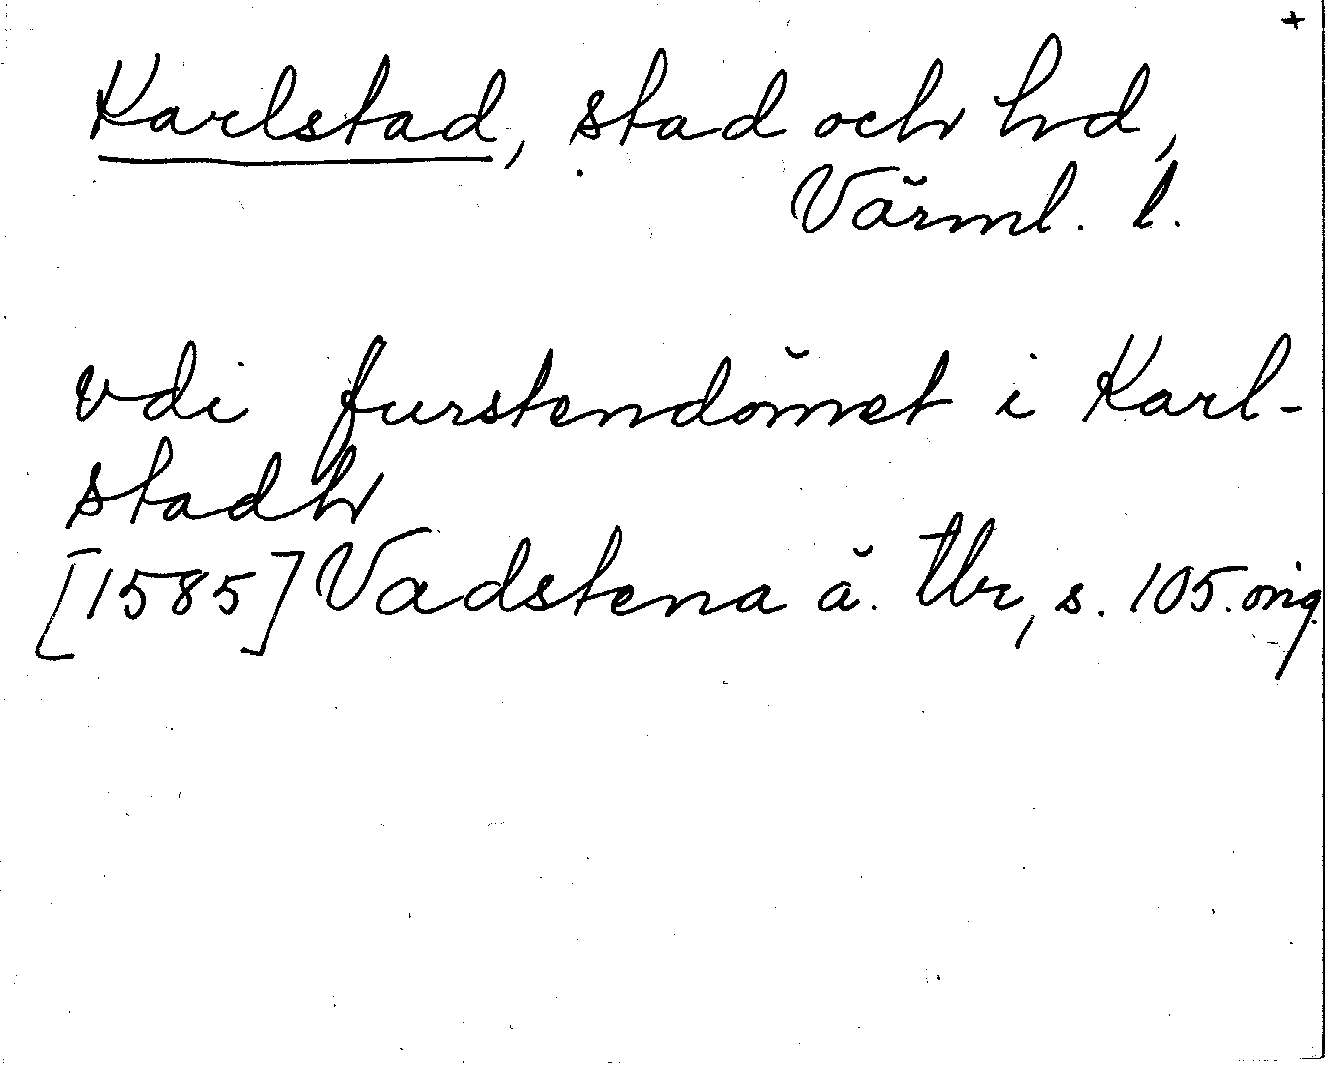 +
Karlstad, stad och hd,
Värml. l.
vdi furstendömet i Karl-
stadh
[1585] Vadstena ä. tbr, s. 105. orig.